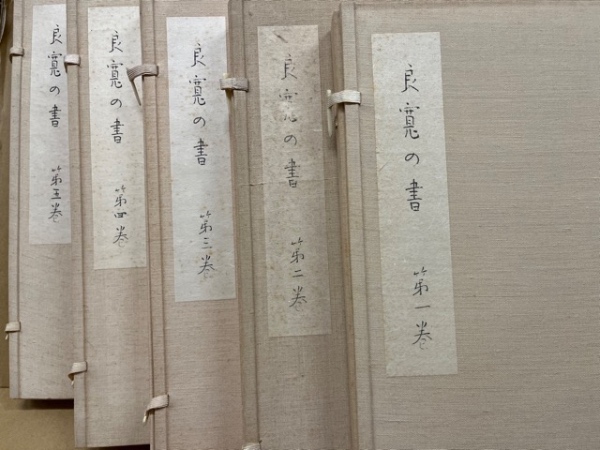 良寛の書 第一巻
良寛の書 第二巻
良寛の書 第三巻
良寛の書 第四巻
良寛の書 第五巻